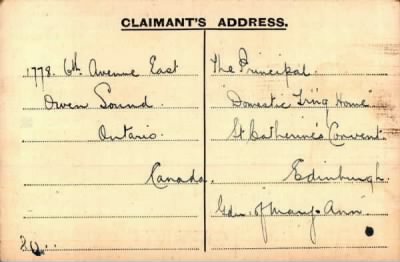 CLAIMANT'S ADDRESS.
1778. 6th Avenue East
Owen Sound.
Ontario.
Canada.
The Principal.
"Domestic Tr'ng Home"
St Catherine's Convent.
Edinburgh.
Gdn. of Mary Ann